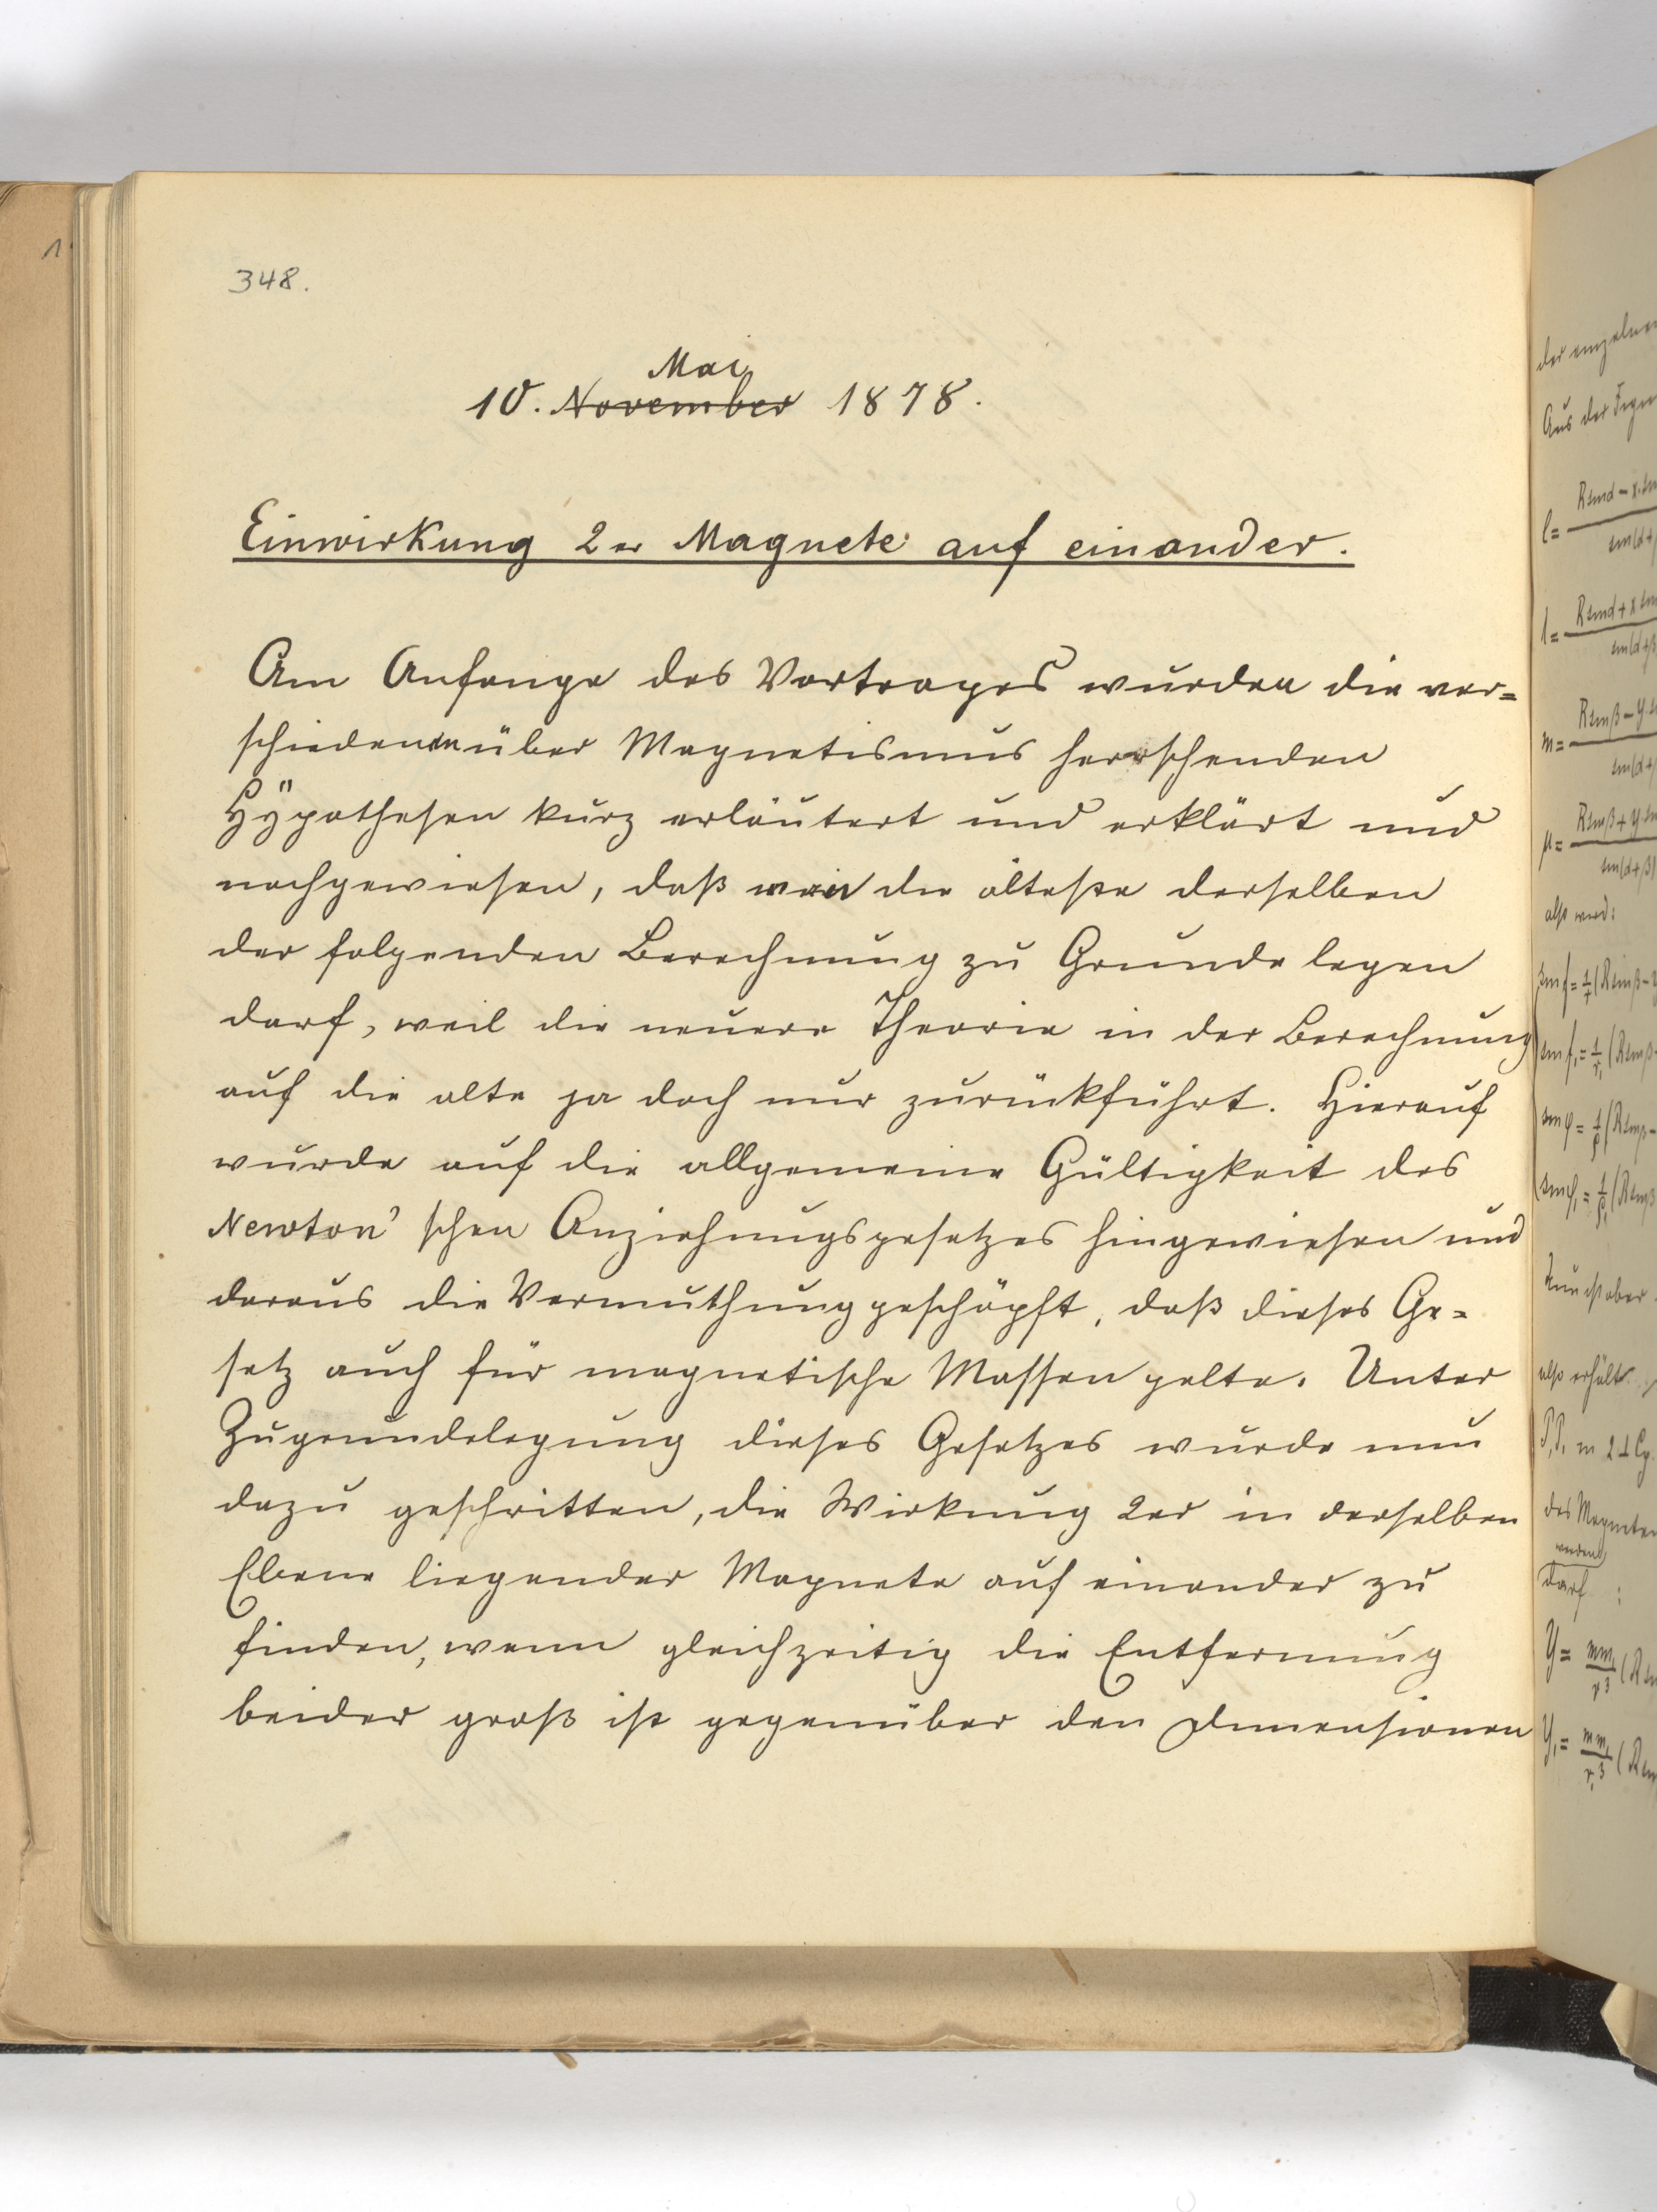 348.
Mai
10. November 1878.
Einwirkung 2er Magnete auf einander.
Am Anfange des Vortrages wurden die ver=
schiedenen über Magnetismus herrschenden
Hÿpothesen kurz erläutert und erklärt und
nachgewiesen, daß man die älteste derselben
der folgenden Berechnung zu Grunde legen
darf, weil die neuere Theorie in der Berechnung
auf die alte ja doch nur zurückführt. Hierauf
wurde auf die allgemeine Gültigkeit des
Newton' schen Anziehungsgesetzes hingewiesen und
daraus die Vermuthung geschöpft, daß dieses Ge=
setz auch für magnetische Massen gelte. Unter
Zugrundelegung dieses Gesetzes wurde nun
dazu geschritten, die Wirkung 2er in derselben
Ebene liegender Magnete auf einander zu
finden, wenn gleichzeitig die Entfernung
beider groß ist gegenüber den Dimensionen
der einzelnen
Aus der
also wird:
also erhält
des Magneten
werden
darf :